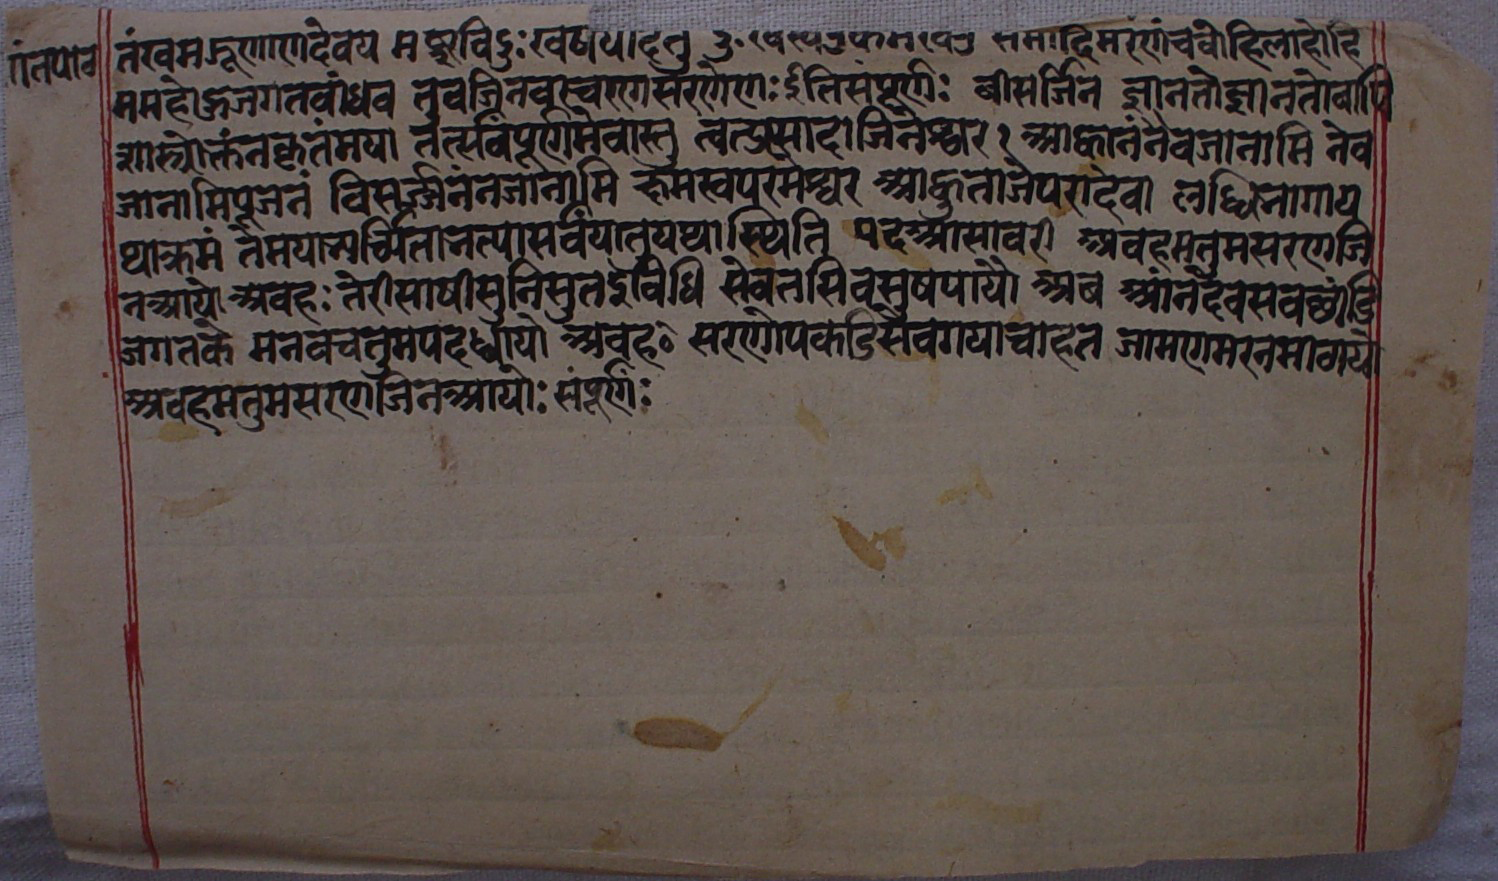 तंखमऊूणाणदेवय मझवि दुःखषयाहेतु दुःखस्यउकमखउ समाहिमरणंचवोहिलाहोहि
ममहोऊजगतवांधव तुवजिनवरचरणसरणेणः ईतिसंपूर्णः बीसर्जिन ज्ञानतोज्ञानतोवापि
शास्त्रोक्तंनकृतंमया तत्सर्वंपूर्णमेवास्तु त्वत्प्रसादाजिनेश्वर१ आह्वानंनैवजानामि नेव
जानामिपूजनं विसर्ज्जनंनजानामि क्षमस्वपरमेश्वर आहुताजेपरादेवा लध्धिभागाय
थाक्रमं तेमयाभ्यर्च्चिताभत्त्यासर्वेयातुयथास्थिति पदआसावरी अवहमतुमसरणजि
नआयो अवहः तेरीसाषीसुनिसुतईविधि सेवतसिवसुषपायो अब आंनदेवसवछांडि
जगतके मनवचतुमपदध्यायो अवह॰ सरणोपकडिसेवगयाचाहत जामणमरनमीठायो
अवहमतुमसरणजिनआयोः संपूर्णः